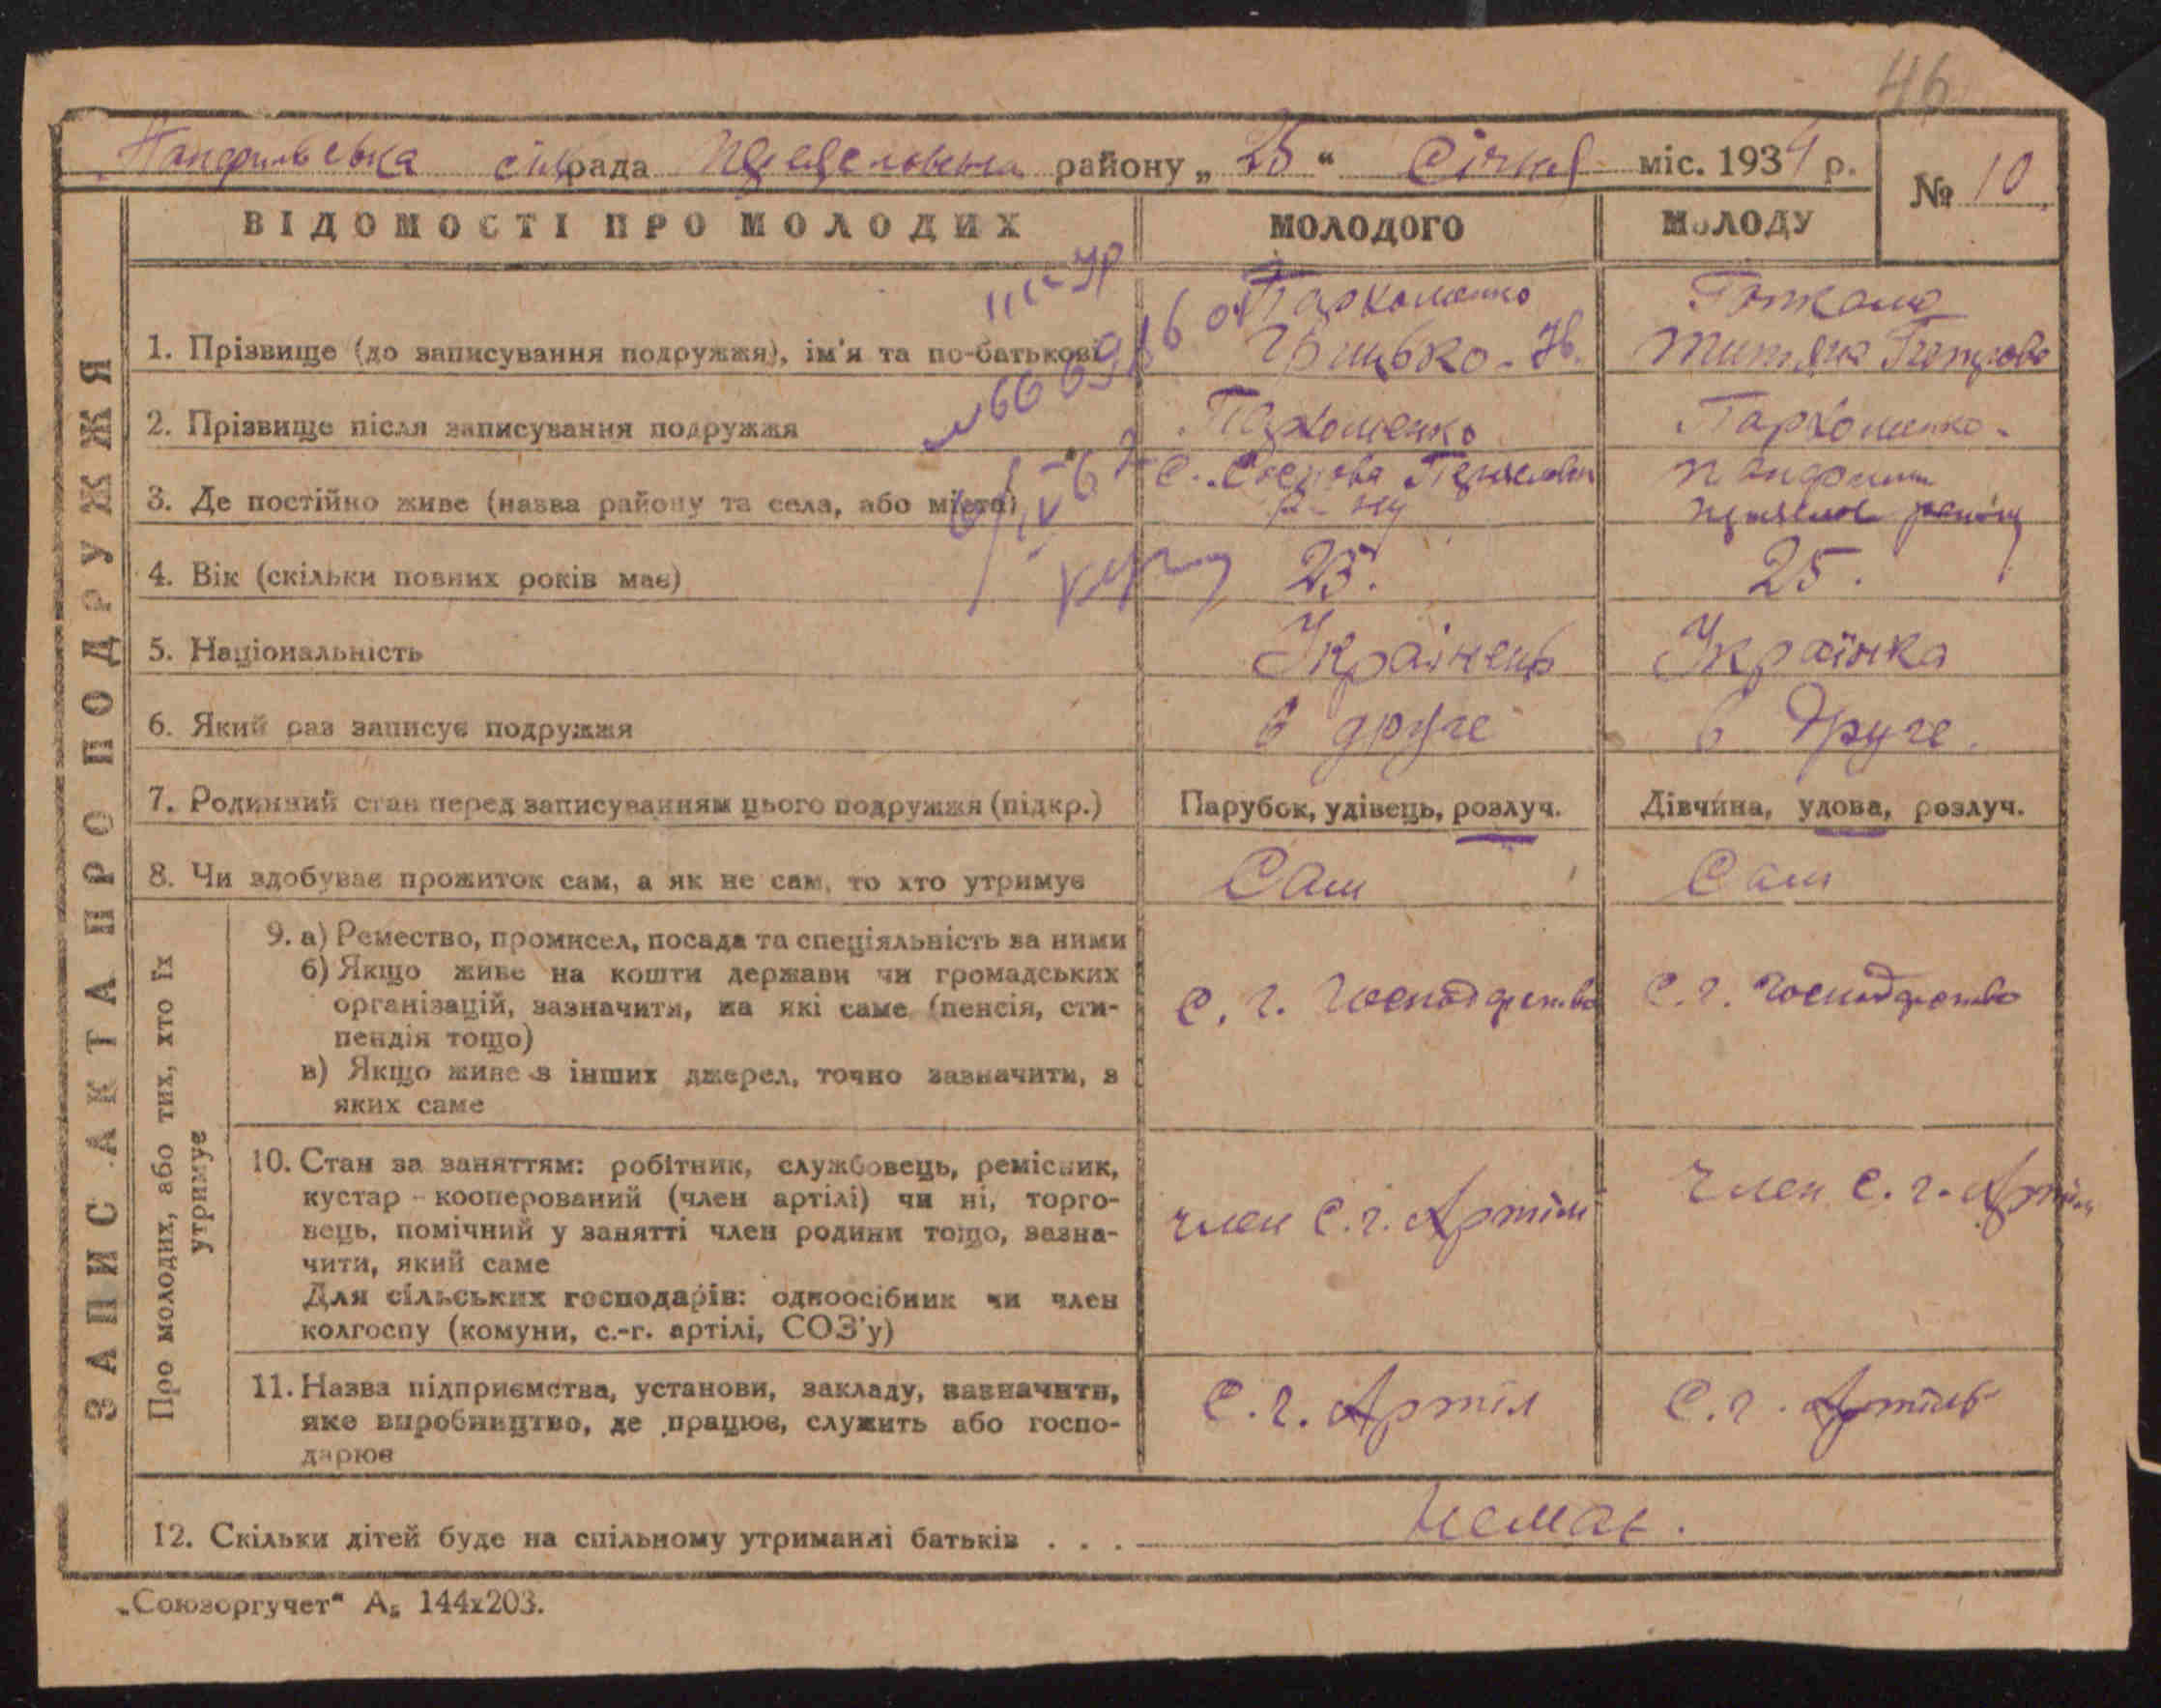 46
Панфильвська сільрада району „ 25 “ Січня міс. 1934 р.
№ 10
ВІДОМОСТІ ПРО МОЛОДИХ
МОЛОДОГО
МОЛОДУ
ЗАПИС АКТА ПРО ПОДРУЖЖЯ
1. Прізвище (до записування подружжя), ім'я та по-батькові
Пархоменко
Грицько
Петрова
2. Прізвище після записування подружжя
Пархоменко
Пархоменко
3. Де постійно живе (назва району та села, або міста)
с.
р-ну
району
4. Вік (скільки повних років має)
25.
5. Національність
Українець
Українка
6. Який раз записує подружжя
в друге
в друге.
7. Родинний стан перед записуванням цього подружжя (підкр.)
Парубок, удівець, розлуч.
Дівчина, удова, розлуч.
8. Чи здобуває прожиток сам, а як не сам, то хто утримує
Сам
Сам
Про молодих, або тих, хто їх
утримує
9. а) Ремество, промисел, посада та спеціяльність за ними
б) Якщо живе на кошти держави чи громадських
організацій, зазначити, на які саме (пенсія, сти-
пендія тощо)
в) Якщо живе з інших джерел, точно зазначити, з
яких саме
с. г. Господарство
с. г. Господарство
10. Стан за заняттям: робітник, службовець, ремісник,
кустар - кооперований (член артілі) чи ні, торго-
вець, помічний у занятті член родини тощо, зазна-
чити, який саме
Для сільських господарів: одноосібник чи член
колгоспу (комуни, с.-г. артілі, СОЗ'у)
член с. г. Артіли
Член с. г. Артіли
11. Назва підприємства, установи, закладу, зазначити,
яке виробництво, де працює, служить або госпо-
дарює
с. г. Артіл
с. г. Артіль
12. Скільки дітей буде на спільному утриманні батьків . . .
Немає.
„Союзоргучет“ А₅ 144х203.